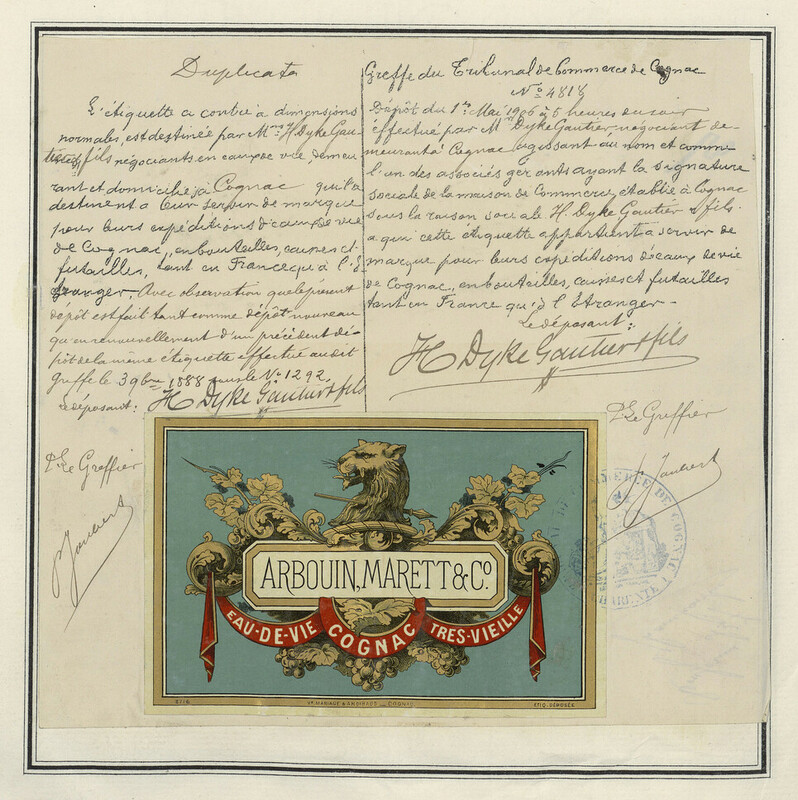 Duplicata
L'étiquette ci contre à dimensions
normales, est destinée par Mrs H. Dyke Gau-
tier & fils négociants en eaux de vie, demeu-
rant et domiciliés à Cognac qui la
destinent à leur servir de marque
pour leurs expéditions d'eaux de vie
de Cognac, en bouteilles, caisses et
futailles, tant en France qu'à l'É-
tranger. Avec observation que le présent
dépôt est fait tant comme dépôt nouveau
qu'en renouvellement d'un précédent dé-
pôt de la même étiquette effectué au dit
Greffe le 3 9bre 1888 sous le No 1292.
Le déposant: H Dyke Gautier & fils
Pr Le Greffier
Greffe du Tribunal de Commerce de Cognac
No 4818
Dépôt du 1er Mai 1906 à 5 heures du soir
effectué par Mr Dyke Gautier, négociant de-
meurant à Cognac agissant au nom et comme
l'un des associés gérants ayant la signature
sociale de la maison de Commerce, établie à Cognac
sous la raison sociale H. Dyke Gautier & fils.
à qui cette étiquette appartient à servir de
marque pour leurs expéditions d'eaux de vie
de Cognac, en bouteilles, caisses et futailles
tant en France qu'à l'Etranger.
Le déposant:
H Dyke Gautier & fils
Pr Le Greffier
ARBOUIN, MARETT & Co.
EAU-DE-VIE COGNAC TRES-VIEILLE
COMMERCE DE COGNAC
CHARENTE
COGNAC
ETIQ. DÉPOSÉE